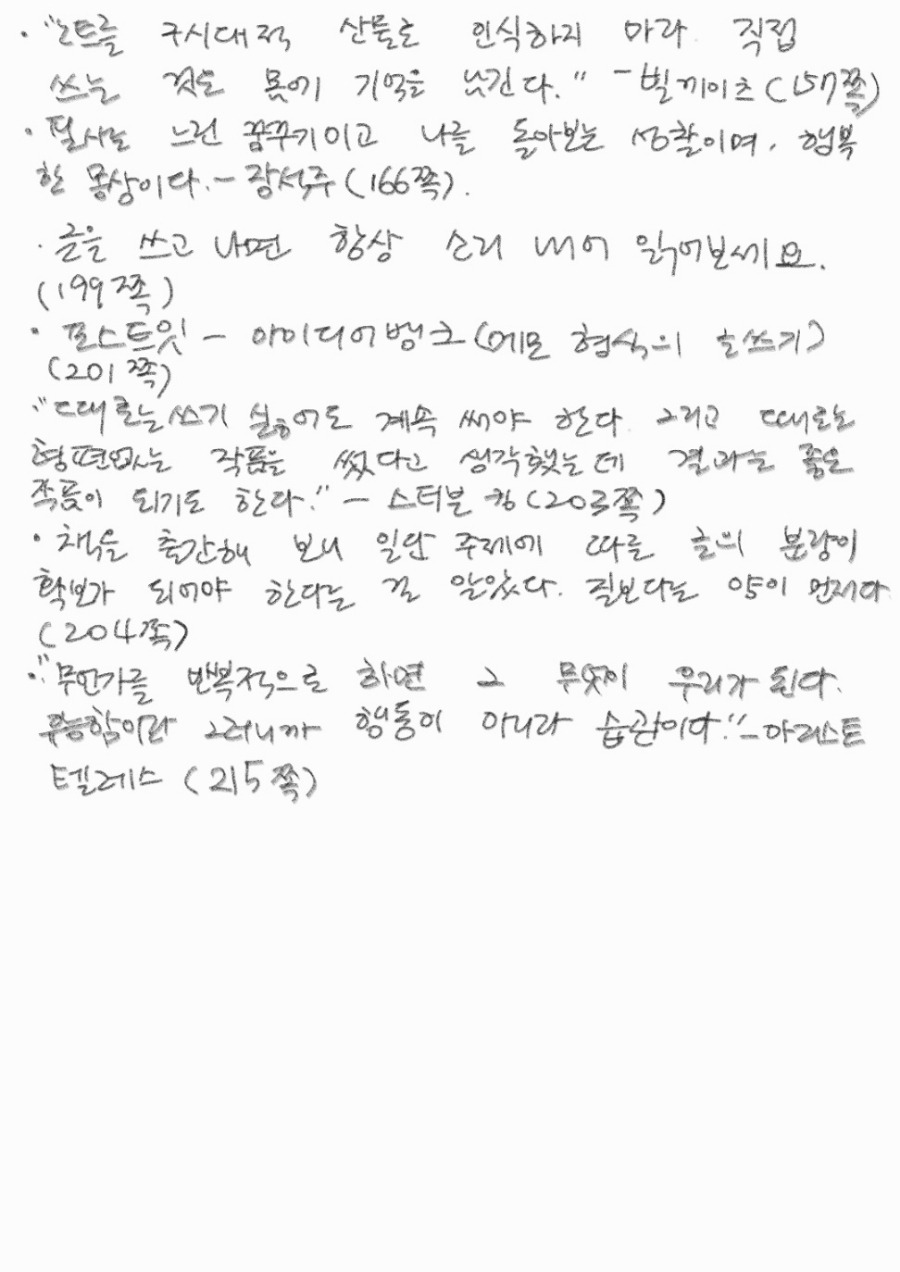 · "노트를 구시대적 산물로 인식하지 마라. 직접
쓰는 것도 몸에 기억을 남긴다." - 빌게이츠 (157쪽)
· 필사는 느린 꿈꾸기이고 나를 돌아보는 성찰이며, 행복
한 몽상이다. - 장석주 (166쪽).
· 글을 쓰고 나면 항상 소리 내어 읽어보세요.
(199쪽)
· 포스트잇 - 아이디어뱅크 (메모 형식의 글쓰기)
(201쪽)
"때로는 쓰기 싫어도 계속 써야 한다. 그리고 때로는
형편없는 작품을 썼다고 생각했는데 결과는 좋은
작품이 되기도 한다." - 스티븐 킹 (203쪽)
· 책을 출간해 보니 일단 주제에 따를 글의 분량이
확보가 되어야 한다는 걸 알았다. 질보다는 양이 먼저다
(204쪽)
· "무언가를 반복적으로 하면 그 무엇이 우리가 된다.
그러니까 행동이 아니라 습관이다." - 아리스토
텔레스 (215쪽)